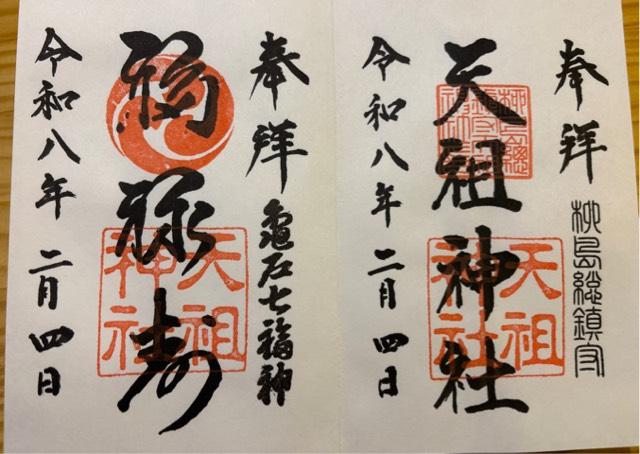 奉拝
柳島総鎮守
天祖神社
天祖神社
令和八年二月四日
奉拝
亀戸七福神
福禄寿
天祖神社
令和八年二月四日